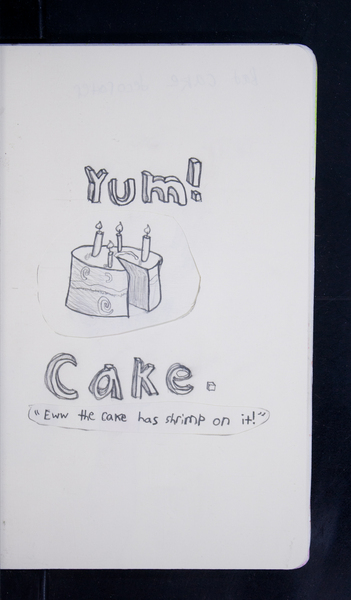 Yum!
Cake.
("Eww the cake has shrimp on it!")